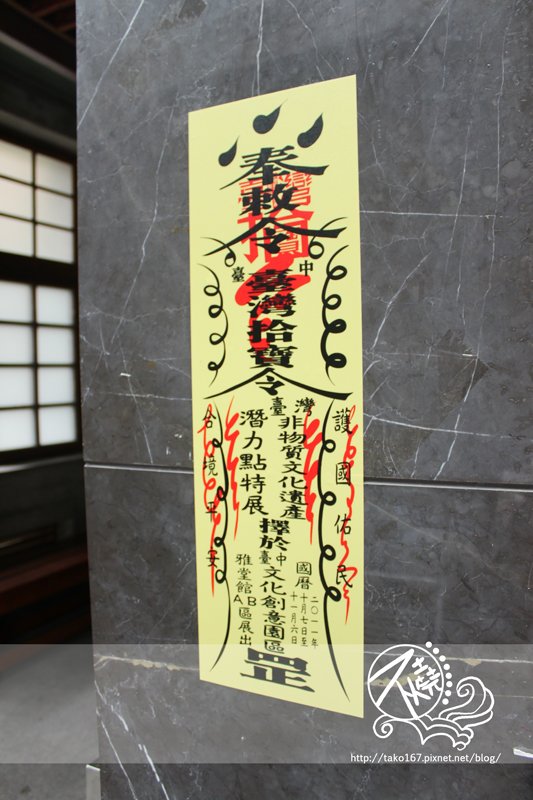 奉敕令
臺中
臺灣拾寶
令
臺灣
非物質文化遺產
潛力點特展
擇於
臺中
文化創意園區
雅堂館AB區展出
國曆
二〇一一年
十月七日至
十一月六日
護國佑民
合境平安
罡
http://tako167.pixnet.net/blog/